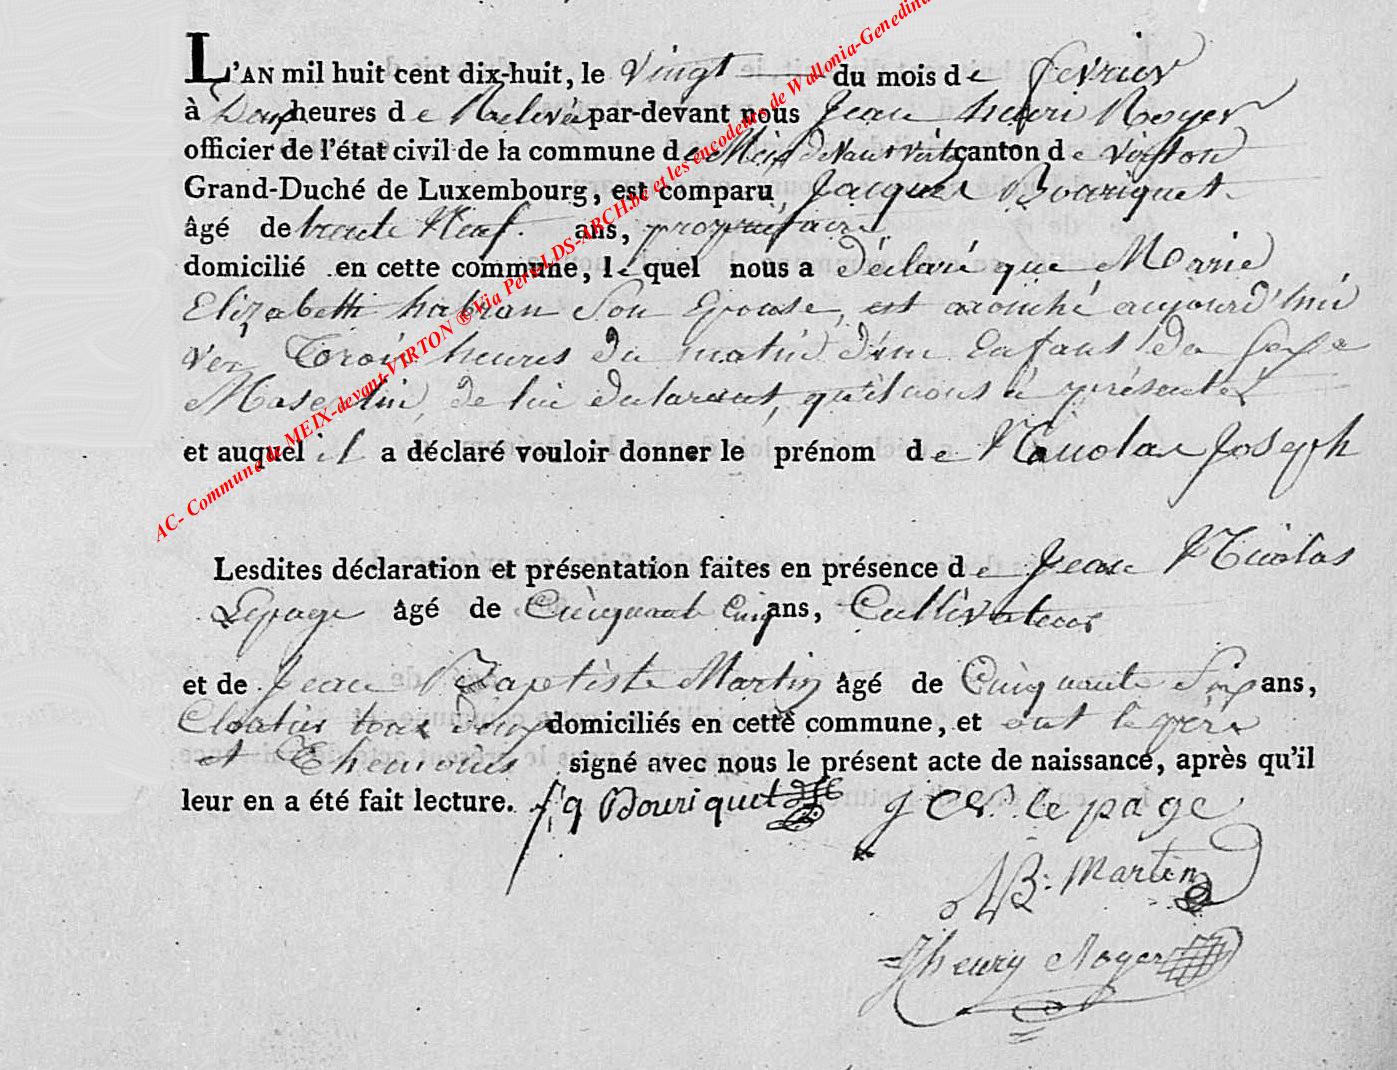 L'AN mil huit cent dix-huit, le vingt du mois de fevrier
à Deux heures de Relevée par-devant nous Jean henri Noyer
officier de l'état civil de la commune de Meix devant virton canton de virton
Grand-Duché de Luxembourg, est comparu Jacques Bouriquet
âgé de trente Neuf ans, propriétaire
domicilié en cette commune, lequel nous a déclaré que Marie
Elizabeth habran Son Epouse, est acouché aujourd'hui
ver Trois heures du matin d'un Enfant du Sexe
Masculin, de lui déclarant, qu'il nous à présenté
et auquel il a déclaré vouloir donner le prénom de Nicolas Joseph
Lesdites déclaration et présentation faites en présence de Jean Nicolas
Lepage âgé de Cinquante Cinq ans, Cultivateur
et de Jean Baptiste Martin âgé de Cinquante Six ans,
Cloutier tous deux domiciliés en cette commune, et ont le père
et Themoins signé avec nous le présent acte de naissance, après qu'il
leur en a été fait lecture. Bouriquet
lepage
B: Martin
Jhenry Noyer
AC- Commune de MEIX-devant-VIRTON ® Via Pers-LDS-ARCH.be et les encodeurs de Wallonia-Genedina